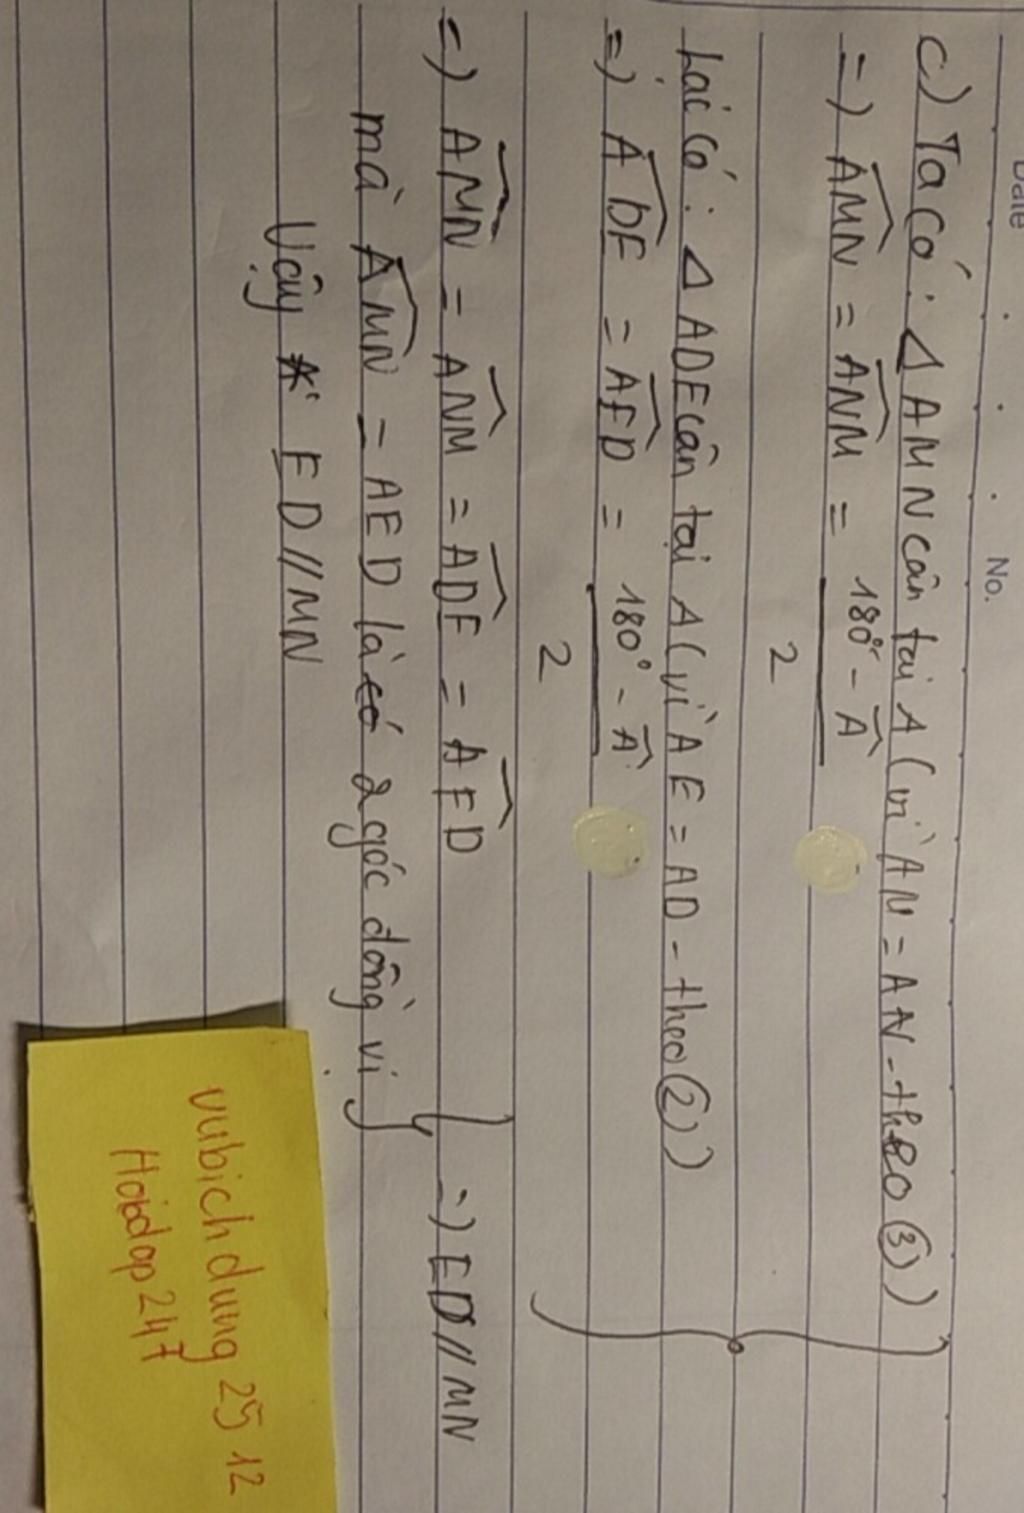 Date
No.
c) Ta có: Δ AMN cân tại A (vì AN = AN - theo ③)
=) AMN = ANM = 180° - A
2
Lại có: Δ ADE cân tại A (vì AE = AD - theo ②)
=) ADE = AED = 180° - A
2
=) AMN = ANM = ADE = AED
mà AMN = AED là có 2 góc đồng vị
=) ED // MN
Vậy ED // MN
vubichdung 25 12
Hoidap247